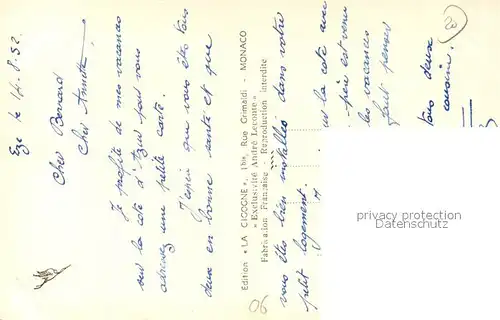 Eze le 14.8.52.
Cher Bernard
Cher Annette,
Je profite de mes vacances
sur la cote d'Azur pour vous
adresser une petite carte.
J'espère que vous êtes tous
deux en bonne sante et que
Edition « LA CIGOGNE », 1 bis, Rue Grimaldi - MONACO
« Exclusivité André Leconte »
Fabrication Française - Reproduction interdite
vous êtes bien installés dans votre
petit logement.
la cote avec
est venu
les vacances
faut penser
tous deux
cousin.
privacy protection
datenschutz
06